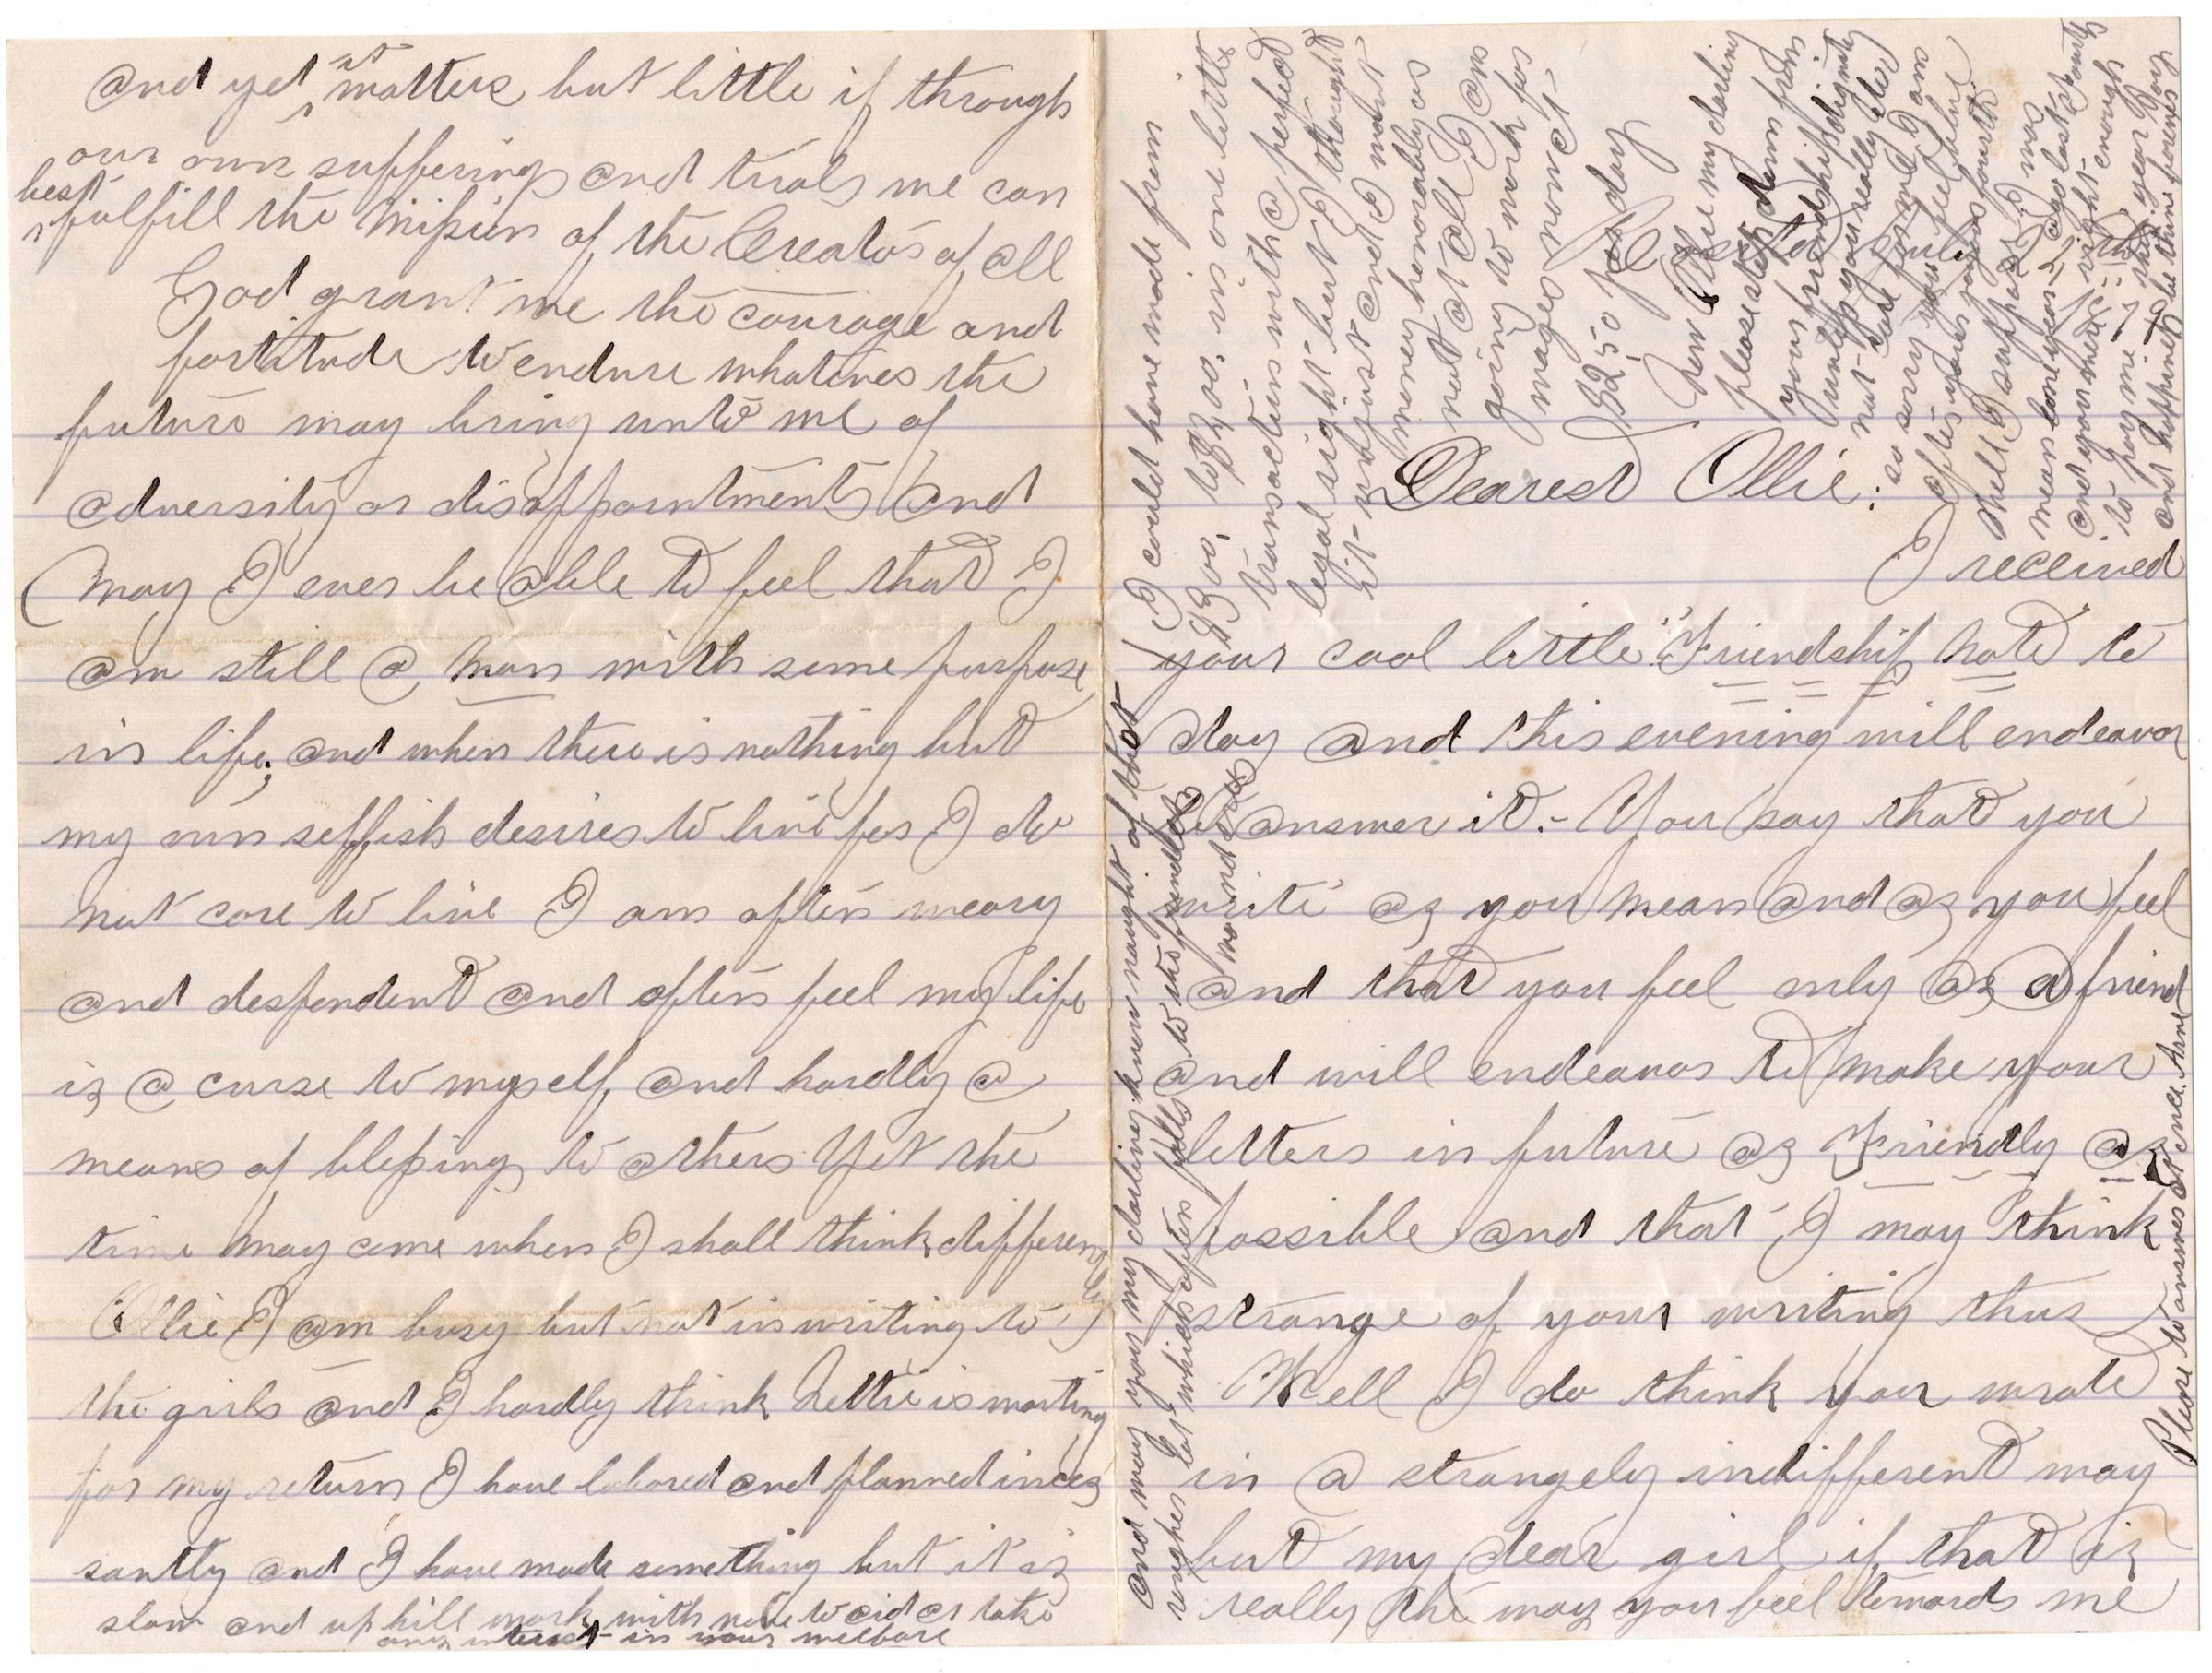 and yet it matters but little if through
our own sufferings and trials we can
best fulfill the mission of the Creator of all
God grant me the courage and
fortitude to endure whatever the
future may bring unto me of
adversity or disappointments and
may I ever be able to feel that I
am still a man with some purpose
in life; and when there is nothing but
my own selfish desires to live for I do
not care to live I am often weary
and despondent and often feel my life
is a curse to myself and hardly a
means of blessing to others Yet the
time may come when I shall think differently
Ollie I am busy but not in writing to
the girls and I hardly think Nettie is waiting
for my return I have labored and planned inces
santly and I have made something but it is
slow and up hill work with none to aid or take
any interest in your welfare
Dearest Ollie:
I received
your cool little "Friendship note to
day and this evening will endeavor
to answer it.- You say that you
write as you mean and as you feel
and that you feel only as a friend
and will endeavor to make your
letters in future as Friendly as
possible and that I may think
strange of your writing thus
Well I do think you wrote
in a strangely indifferent way
but my dear girl if that is
really the way you feel towards me
I could have made from
$300, to 400, in one little
transaction with a perfect
legal right but I thought
it unjust and I want
money honorably or
not at all I am
going to work for
wages now at
$2.50 per day
Now Ollie my darling
please step down from
your friendship dignity
unless you really do
not care for me I am
so sorry you feel blue
after your fourth
Well I suppose I was
mean one year ago last fourth
and you were right enough
to pay me this year
and happiness be thine forever
and may you my darling know naught of that
rougher lot which often falls to the friendless
wanderer
Please to answer at once. Arne